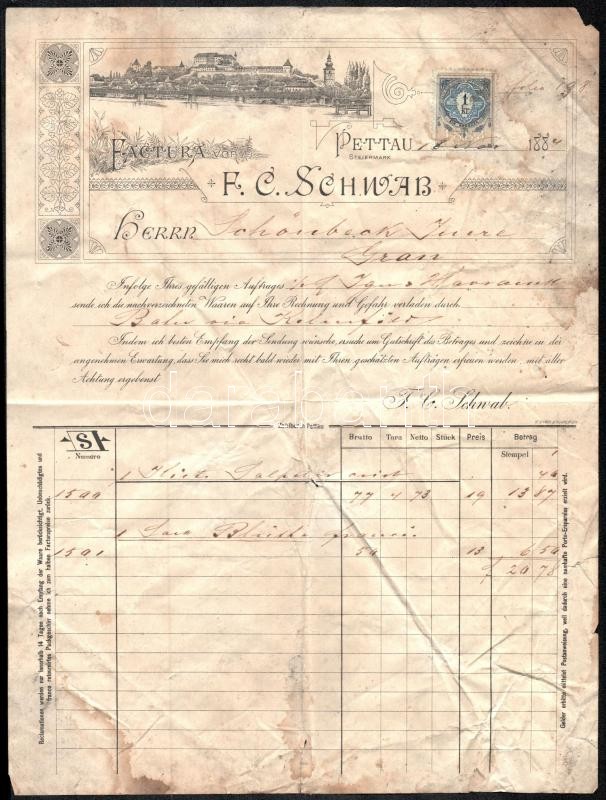 1
Kr
FACTURA VON
PETTAU
STEIERMARK
188
F. C. SCHWAB
HERRN Schönbeck Imre
Gran
Infolge Ihres gefälligen Auftrages
sende ich die nachverzeichneten Waaren auf Ihre Rechnung und Gefahr verladen durch
Bahn via
Indem ich besten Empfang der Sendung wünsche, ersuche um Gutschrift des Betrages und zeichne in der
angenehmen Erwartung, dass Sie mich recht bald wieder mit Ihren geschätzten Aufträgen erfreuen werden, mit aller
Achtung ergebenst
F. C. Schwab.
darabanth
Zahlbar in Pettau
S
Numero
Brutto Tara Netto Stück Preis Betrag
Stempel 1
1
1500 77 4 73 19 13 87
1 Sack
1501 50 13 6 50
f 20 78
Reclamationen werden nur innerhalb 14 Tagen nach Empfang der Waare berücksichtigt. Unbeschädigtes und
franco retournirtes Packgeschirr nehme ich zum halben Facturapreise zurück.
Gelder erbitte mittelst Postanweisung, weil dadurch eine namhafte Porto-Ersparniss erzielt wird.